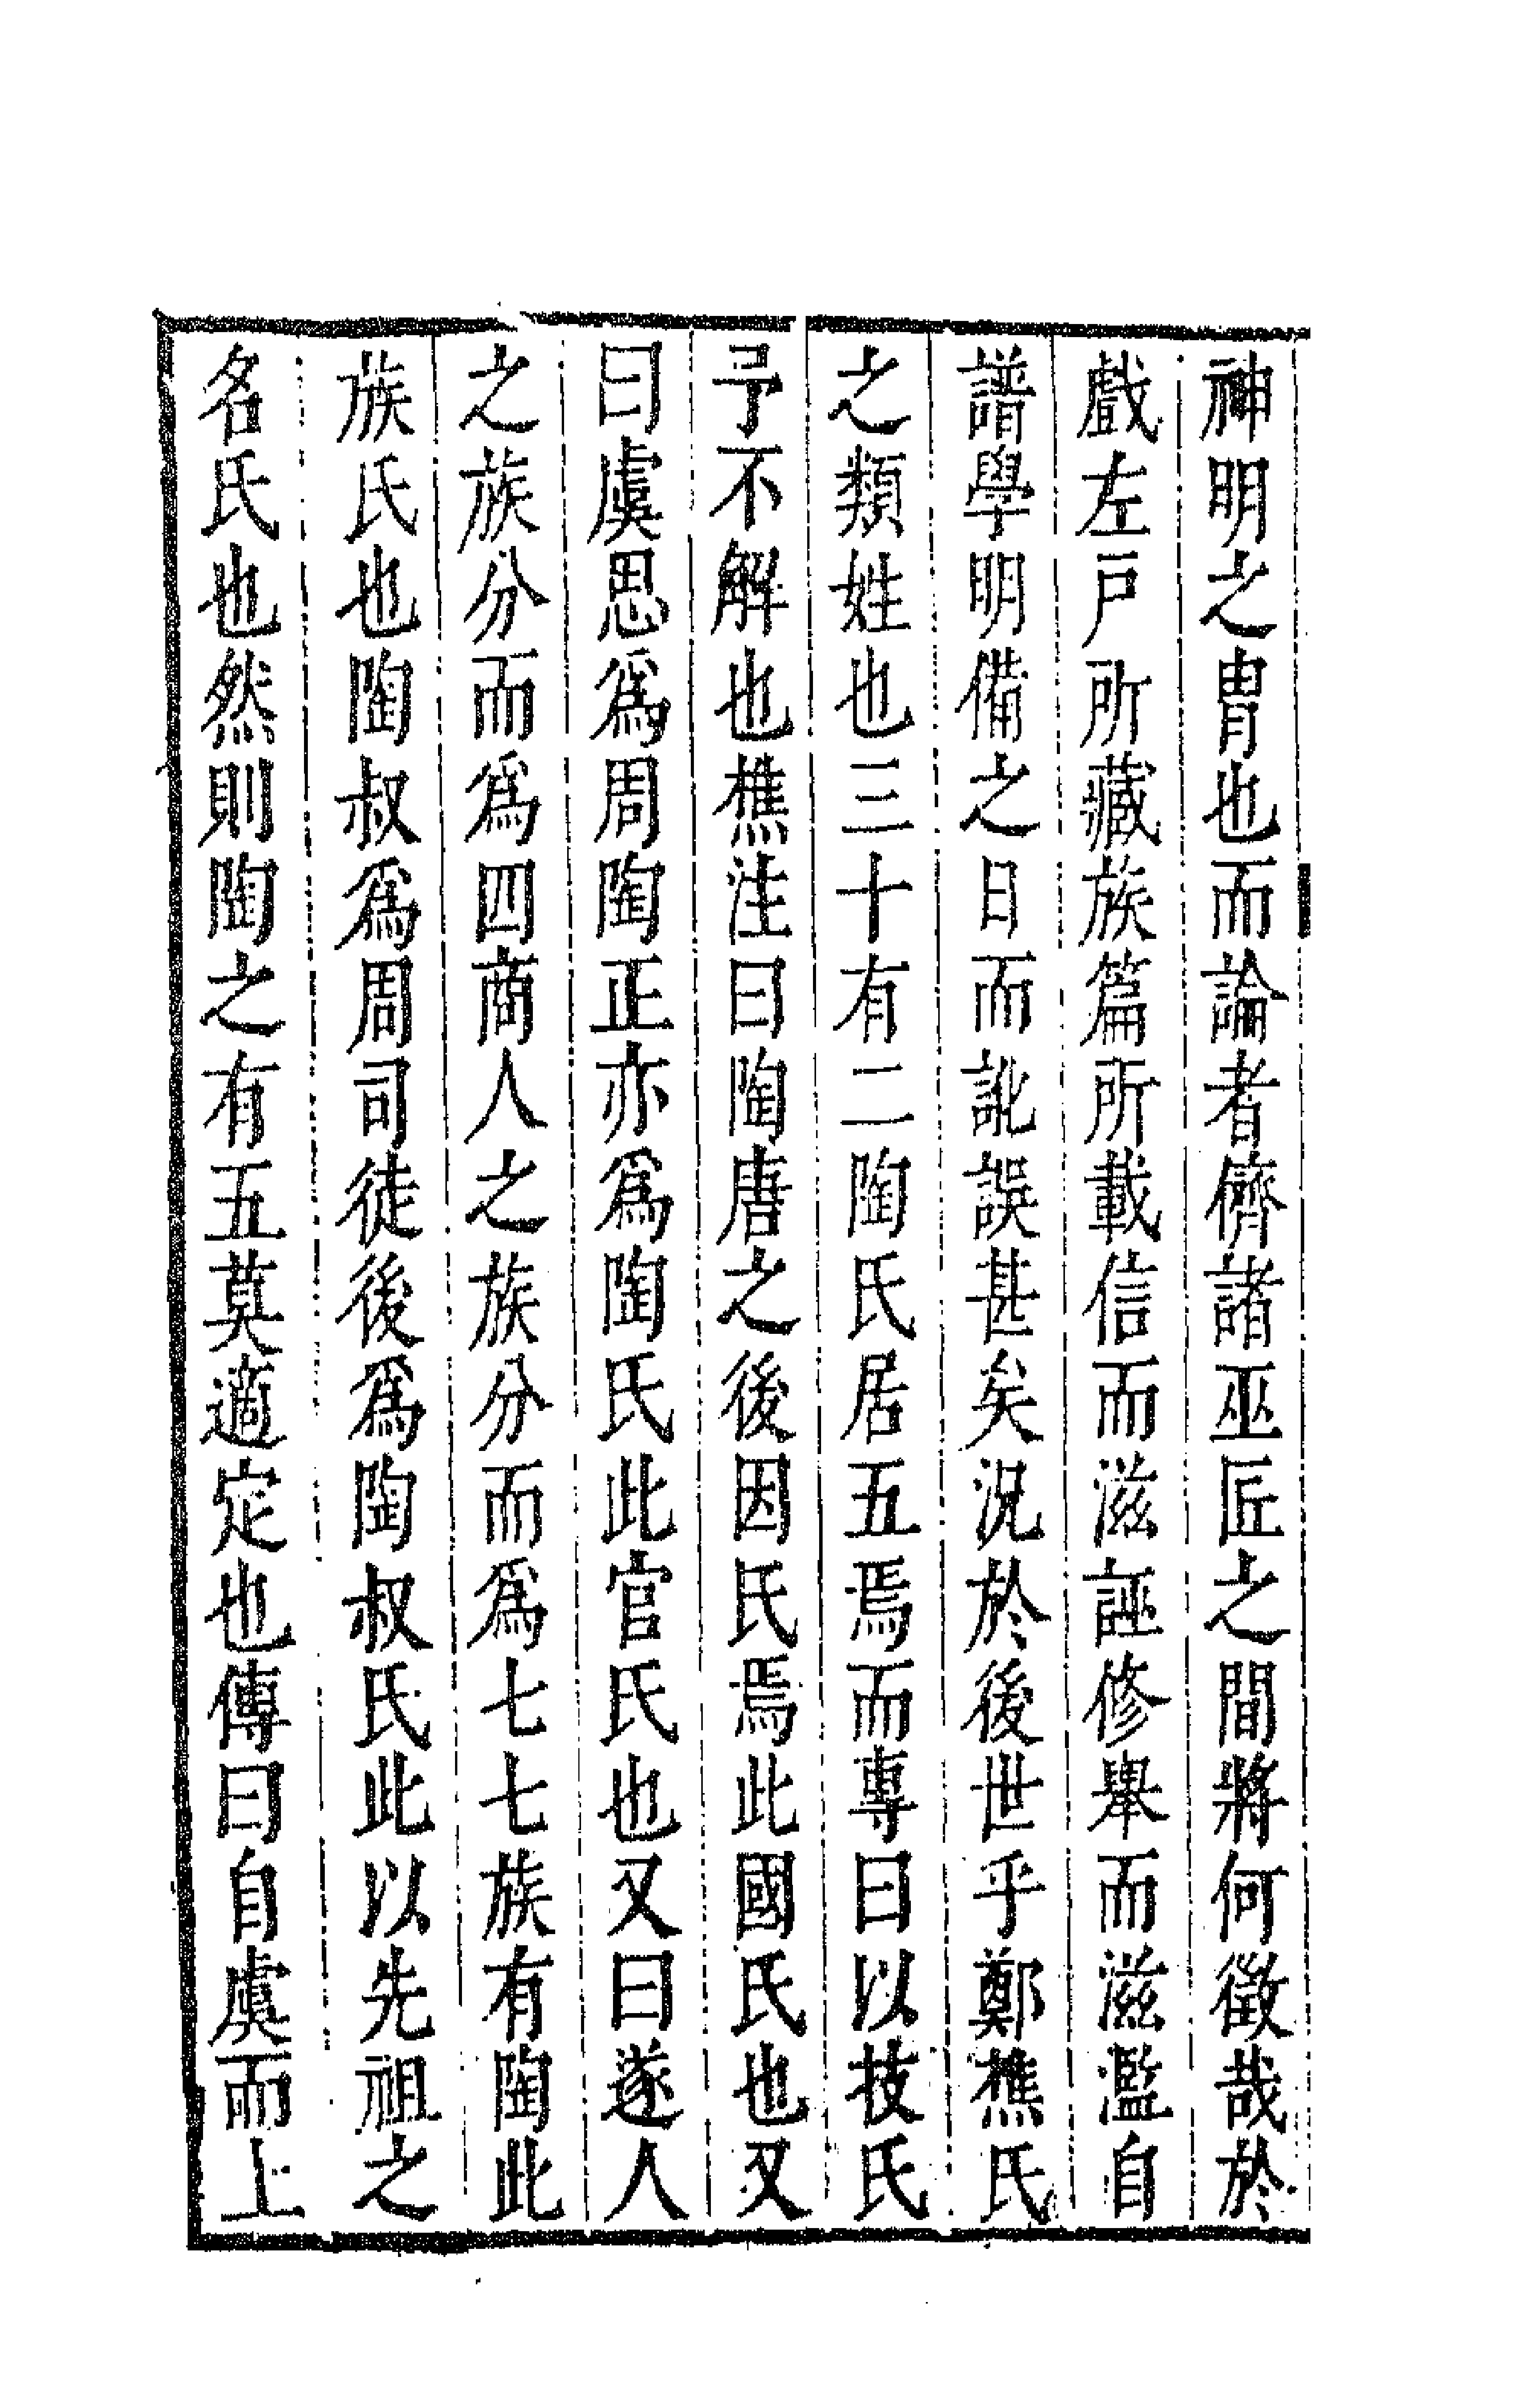 神明之胄也而論者儕諸巫匠之間將何徵哉於
戲左戸所藏族篇所載信而滋誣修舉而滋濫自
譜學明備之日而訛誤甚矣況於後世乎鄭樵氏
之類姓也三十有二陶氏居五焉而專曰以技氏
予不解也樵注曰陶唐之後因氏焉此國氏也又
曰虞思爲周陶正亦爲陶氏此官氏也又曰遂人
之族分而爲四商人之族分而爲七七族有陶此
族氏也陶叔爲周司徒後爲陶叔氏此以先祖之
名氏也然則陶之有五莫適定也傳曰自虞而上